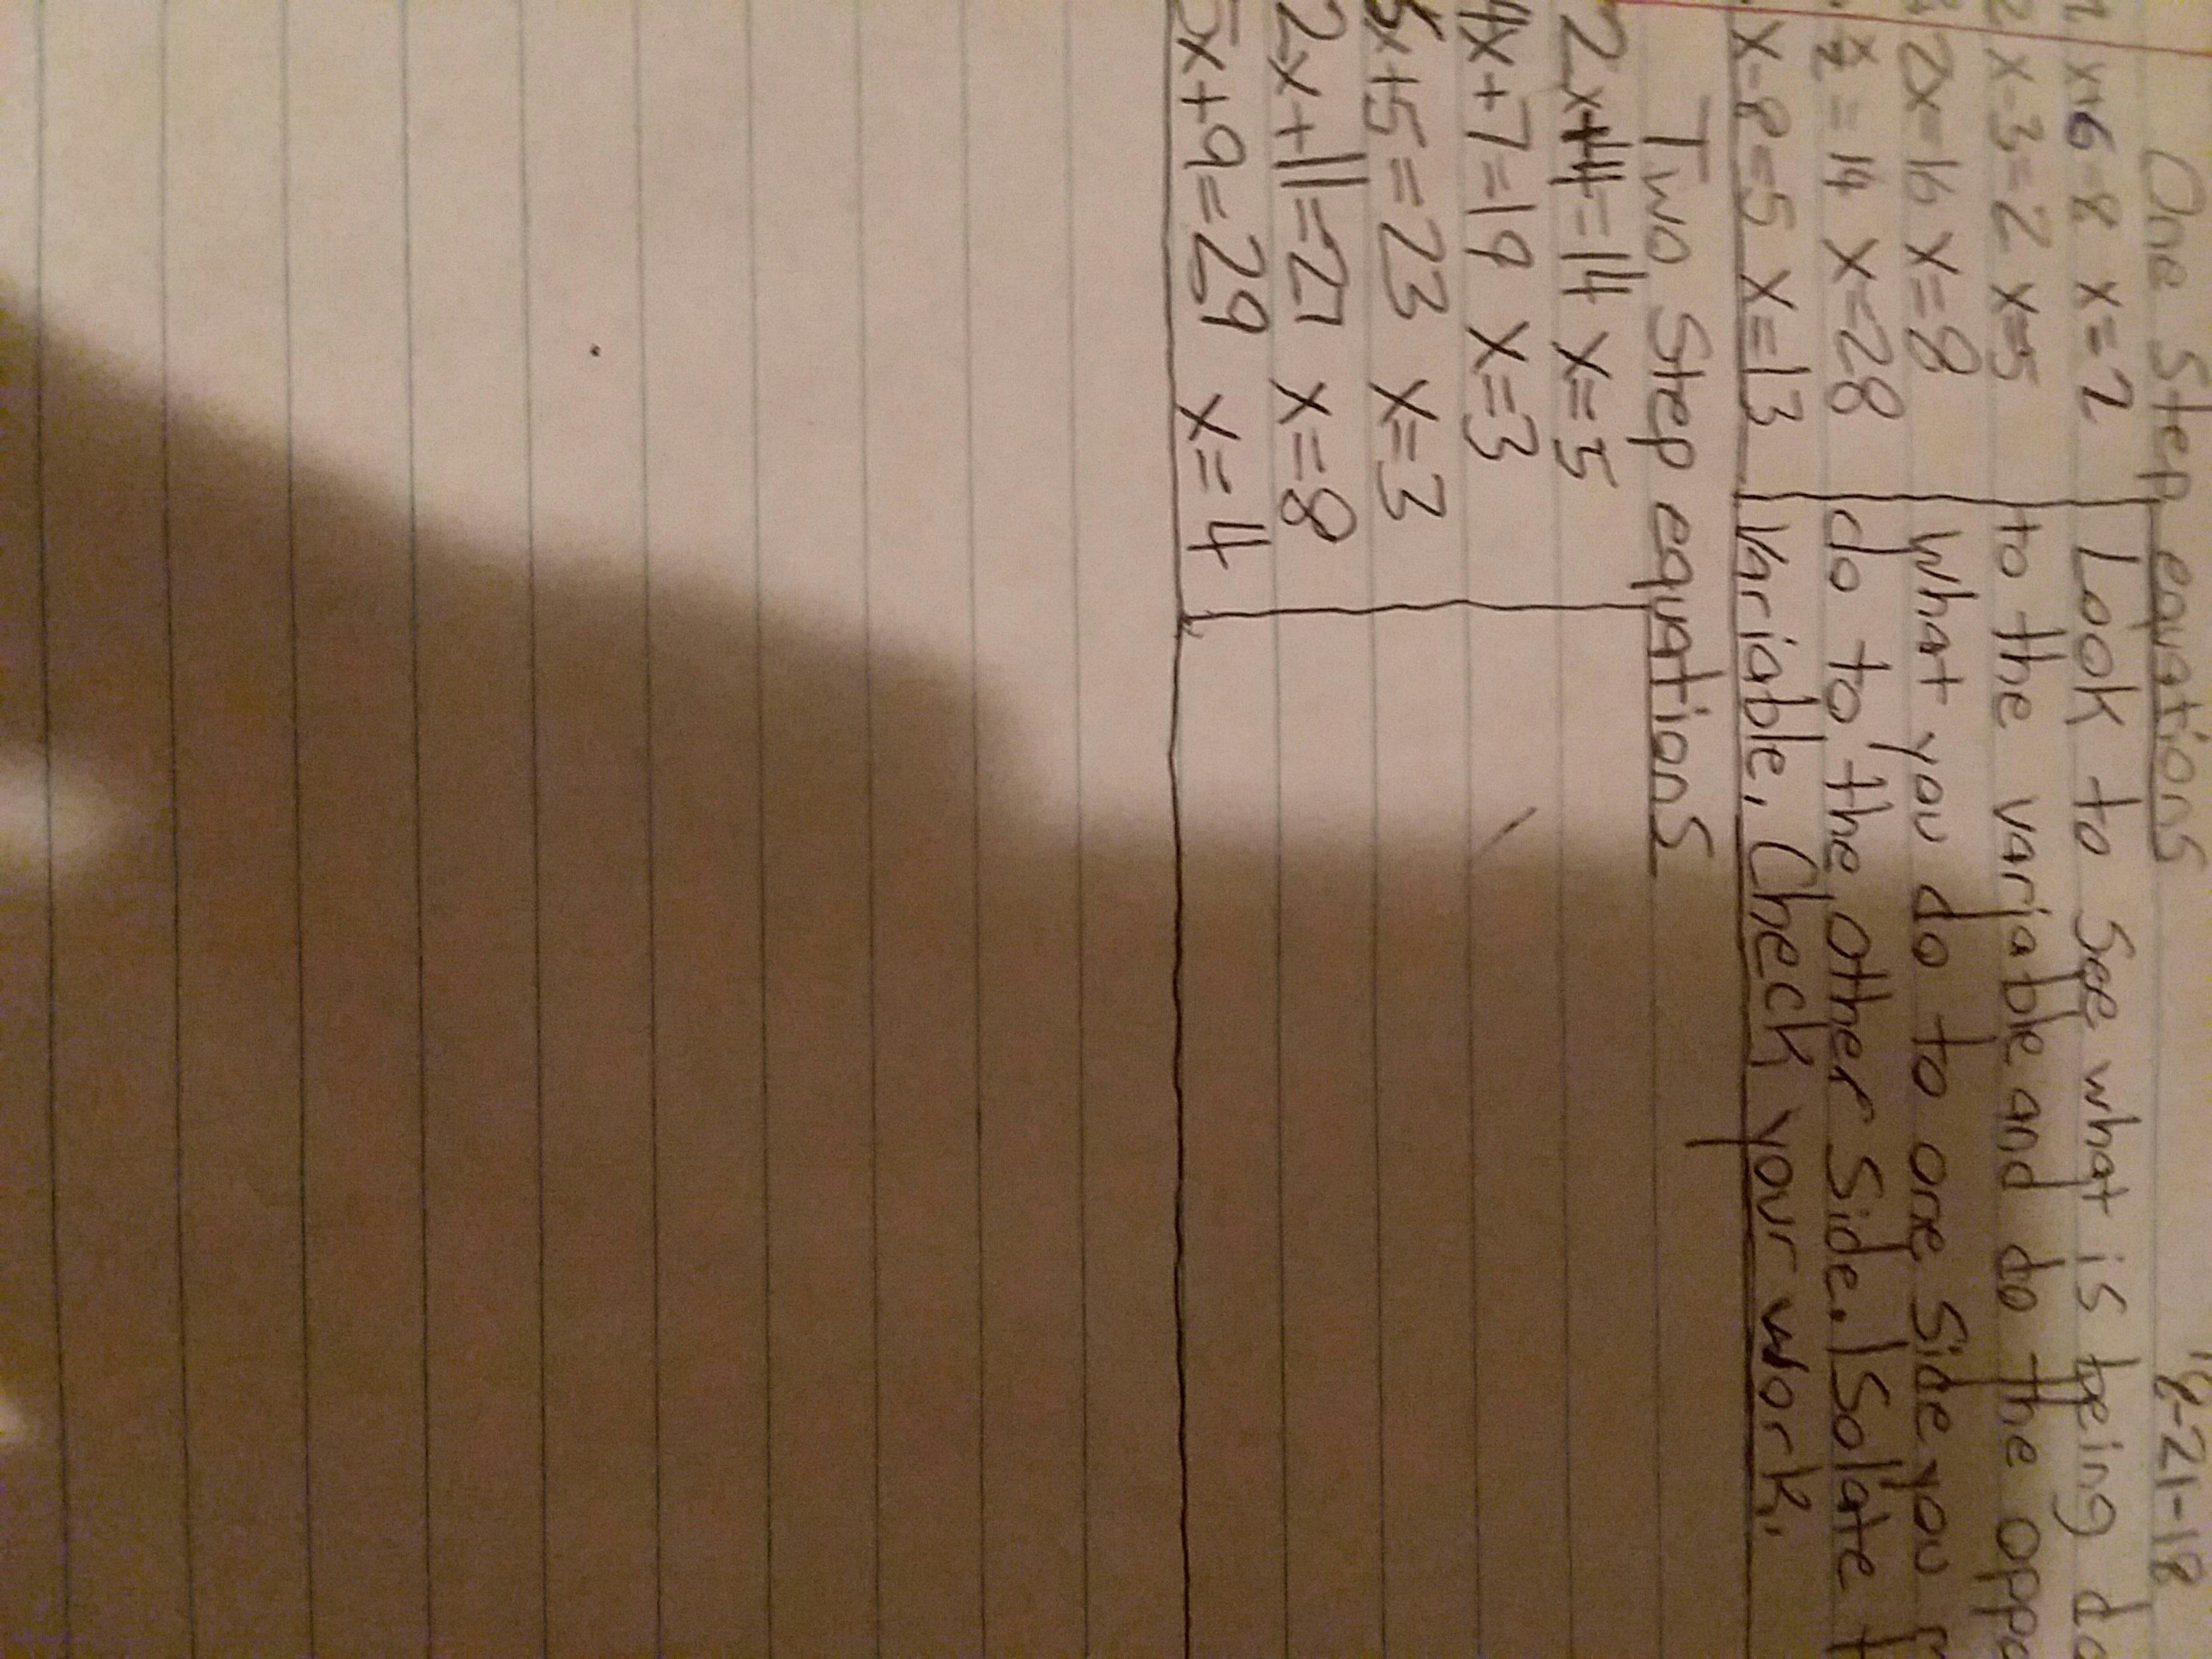 One Step equations 8-21-18
x+6=8 x=2 Look to See what is being
x-3=2 x=5 to the variable and do the
2x=16 x=8 What you do to one Side you
x/2=14 x=28 do to the other Side. Isolate
x-8=5 x=13 Variable, Check your work.
Two Step equations
2x+4=14 x=5
4x+7=19 x=3
x+5=23 x=3
2x+11=27 x=8
5x+9=29 x=4